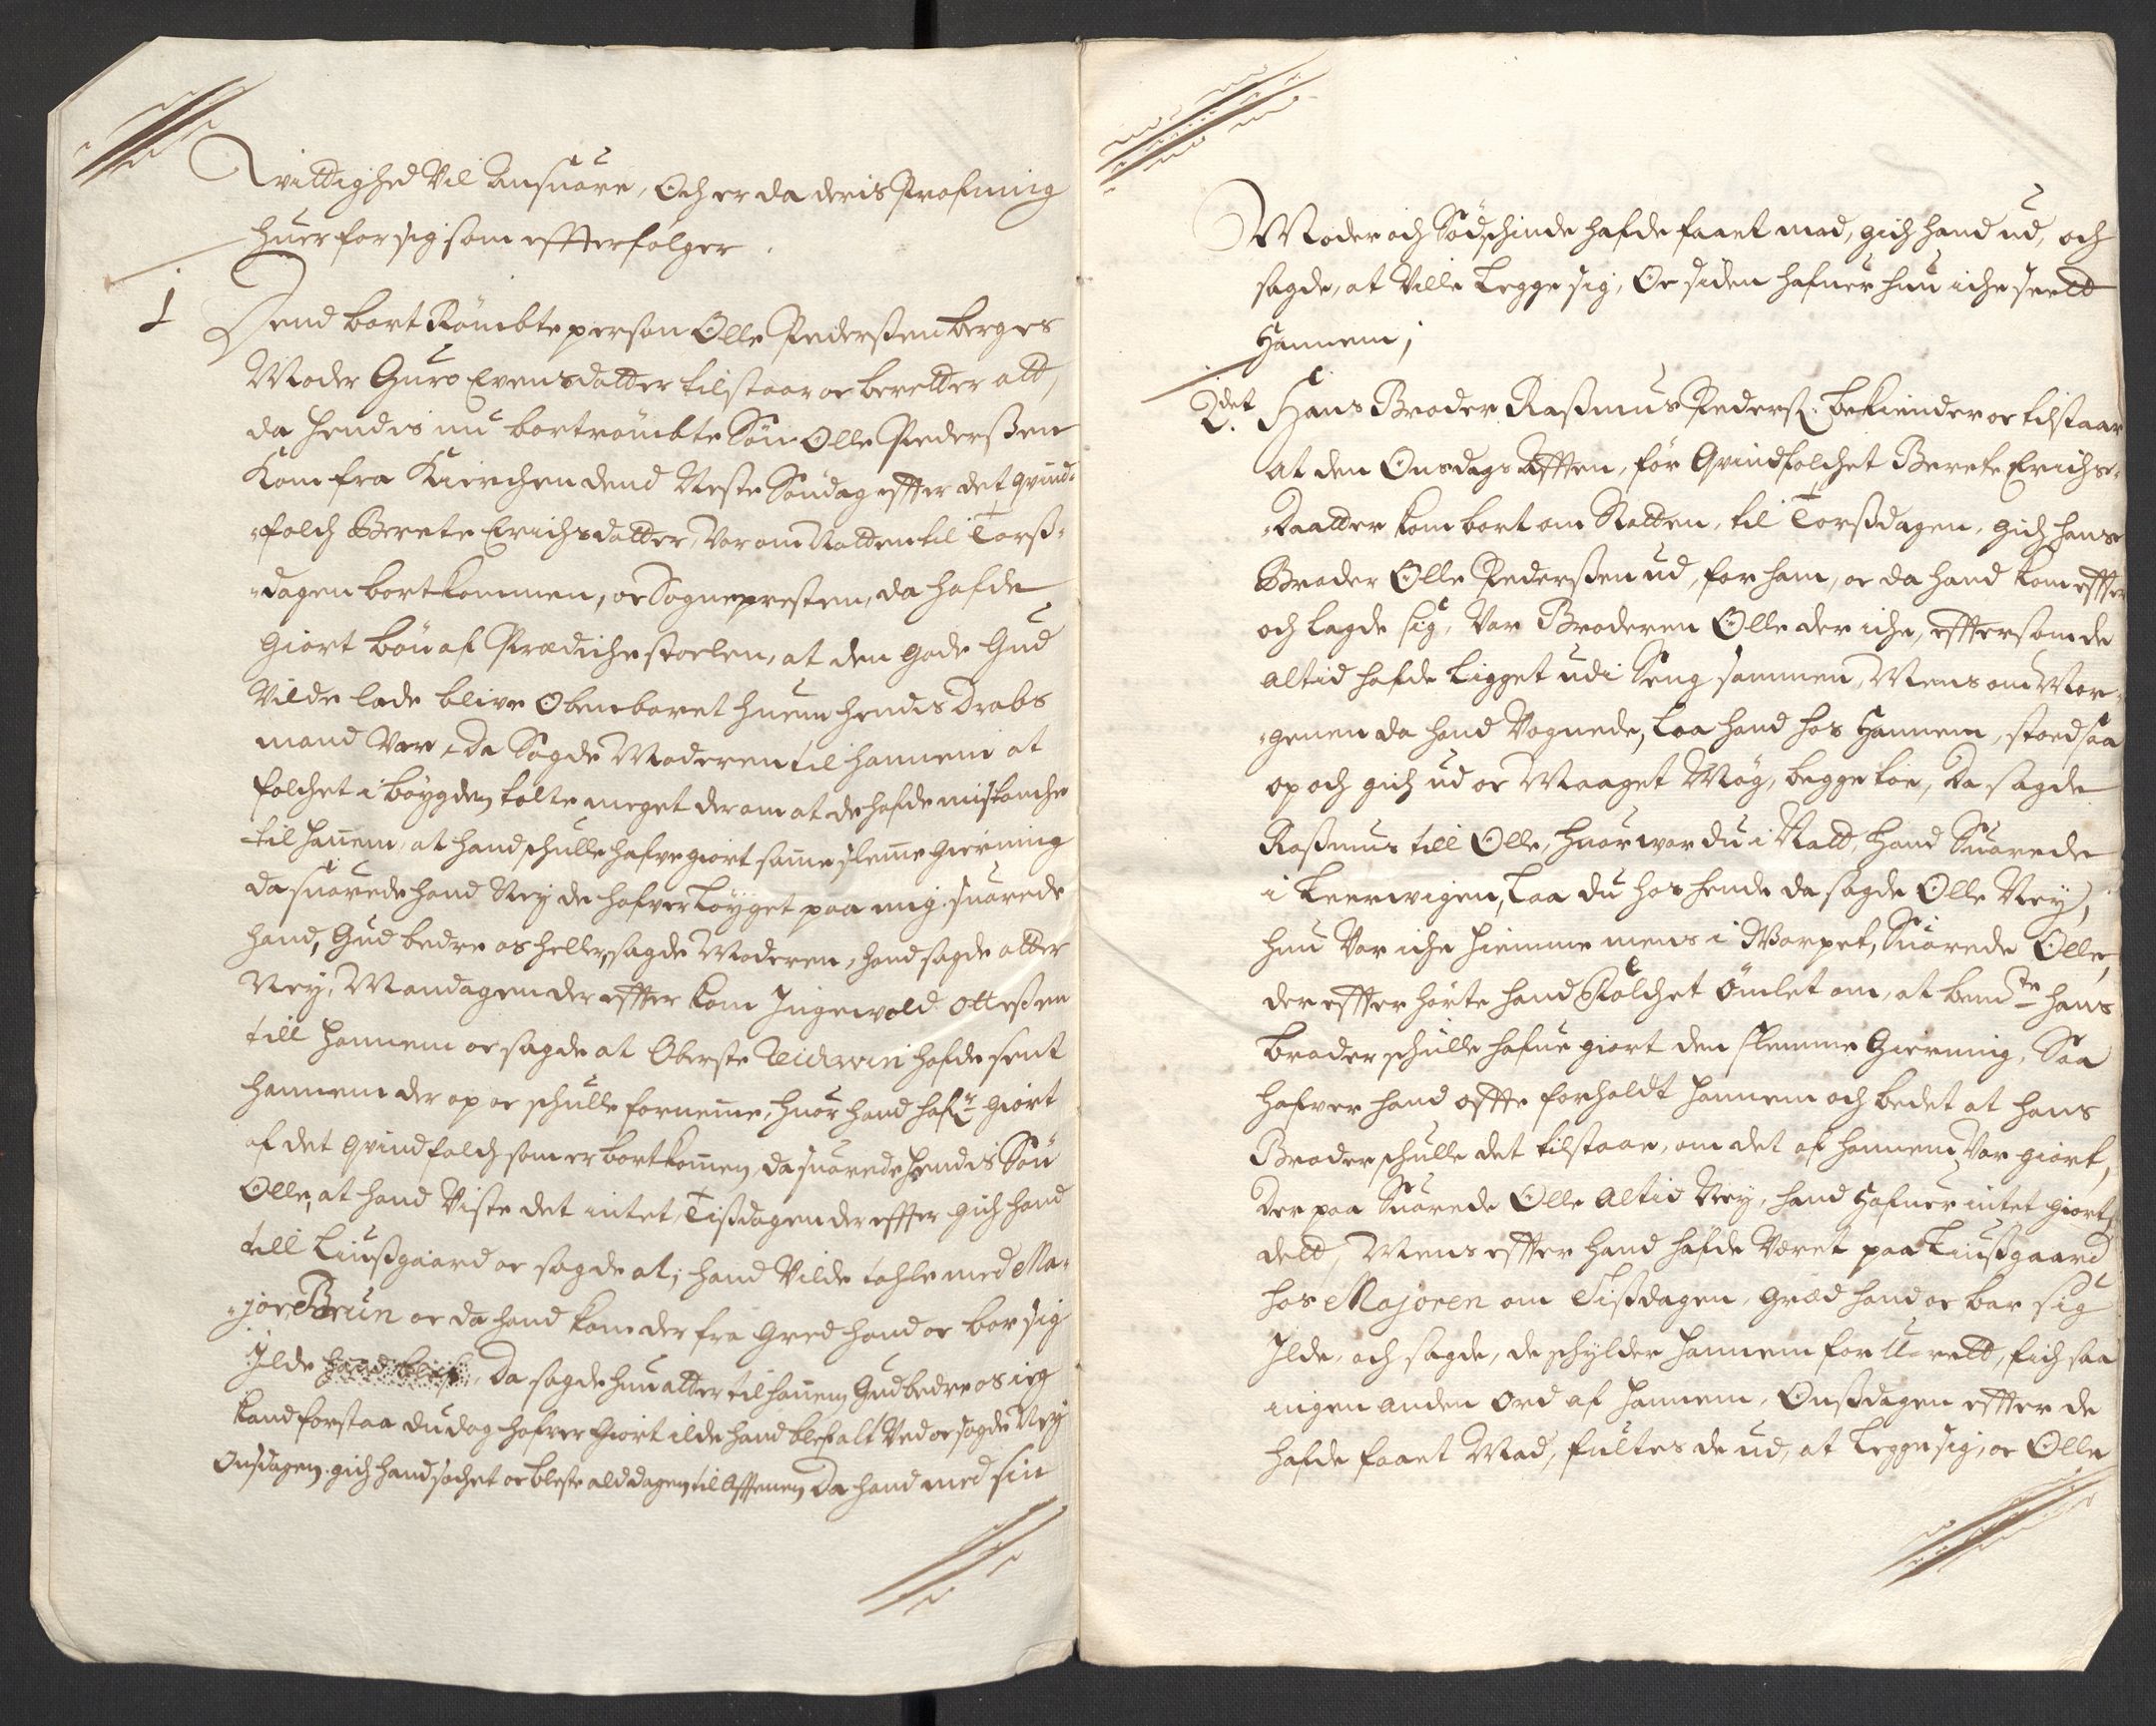 Qvittighed Vil Ansuare, Och er da deris Profning
huer for sig som effterfølger.
1 Dend bort Römbte person Olle Pederssen berges
Moder Guro Evensdatter tilstaar oc beretter att,
da hendis nu bortrömbte Sön Olle Pederssen
Kom fra Kirchen dend Neste Söndag effter det qvind-
-folch Berete Erichsdatter, Var om Natten til Torss-
-dagen bortkommen, oc Sognepresten, da hafde
giort bön af Prædichestoelen, at den gode Gud
Vilde lade blive Obenbaret huem hendis Drabs
mand Var, da Sagde Moderen til hannem at
folchet i böygden talte meget derom at de hafde mistanche
til hannem, at hand schulle hafve giort samme slemme gierning
da suarede hand Ney de hafver löyget paa mig. suarede
hand, Gud bedre os heller, sagde Moderen, hand sagde atter
Ney, Mandagen der effter kom Ingevold Ottessen
till hannem oc sagde at Oberste Teidwin hafde sent
hannem der op oc schulle fornemme, huor hand hafr giort
af det qvindfolch som er bortkommen, da suarede hendis Sön
Olle, at hand Viste det intet, Tissdagen der effter gich hand
till Liussgaard oc sagde at; hand Vilde tahle med Ma-
-jor Brun oc da hand kom der fra Gred hand oc bar sig
Ilde, da sagde hun atter til hannem Gud bedre os ieg
kand forstaa du dog hafver giort ilde hand blef alt Ved oc sagde Ney
Onsdagen gich hand sochet oc bleste ald dagen til Afftenen da hand med sin
Moder och Södschinde hafde faaet mad, gich hand ud, och
sagde, at Ville Legge sig, Oc siden hafuer hun iche seett
Hannem;
2det. Hans Broder Rassmus Pederss. bekiender oc tilstaar
at den Onsdags Afften, för Qvindfolchet Berete Erichs-
-Daatter kom bort om Natten, til Torssdagen, gich hans
Broder Olle Pederssen ud, for ham, oc da hand kom effter
och lagde sig, Var Broderen Olle der iche, effter som de
altid hafde Ligget udi Seng sammen, Mens om Mor-
-genen da hand Vognede, laa hand hos Hannem, stoed saa
op och gich ud oc Maaget Møg, begge toe, Da sagde
Rassmus till Olle, huor war du i Natt, hand Suarede
i Leervigen, laa du hos hende da sagde Olle Ney,
hun Var iche hiemme mens i Warpet, Suarede Olle,
der effter hörte hand Folchet ömlet om, at bemte hans
broder schulle hafue giort den slemme Gierning, Saa
hafver hand offte forholdt hannem och bedet at hans
Broder schulle det tilstaae, om det af hannem Var giort,
Der paa Suarede Olle Altid Ney, hand Hafuer intet giort
dett, Mens effter hand hafde Veret paa Liussgaard
hos Majoren om Tissdagen, græd hand oc bar sig
Ilde, och sagde, de schylder hannem for U-rett, fich saa
ingen anden Ord af hannem, Onssdagen effter de
hafde faaet Mad, fultes de ud, at Legge sig, oc Olle